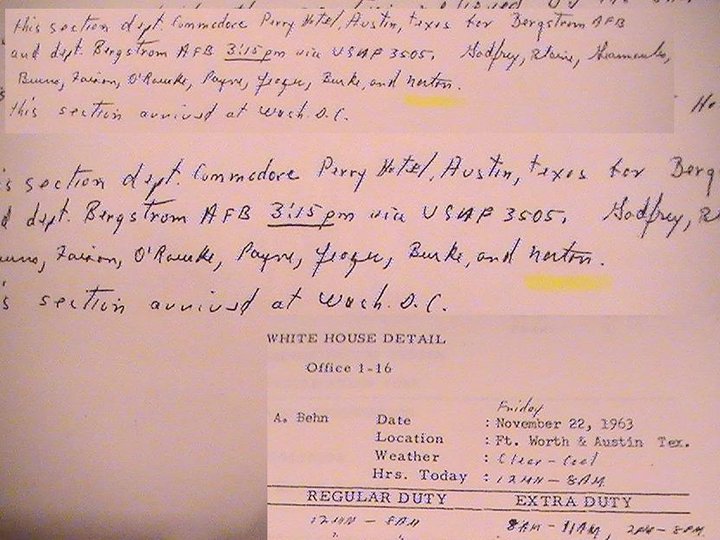 this section dept. Commodore Perry Hotel, Austin, Texas for Bergstrom AFB
and dept. Bergstrom AFB 3:15 pm via USAF 3505. Godfrey,
Burns, O'Rourke, Payne, Yeager, Burke, and Norton.
this section arrived at Wash. D.C.
s section dept. Commodore Perry Hotel, Austin, Texas for Berg
d dept. Bergstrom AFB 3:15 pm via USAF 3505. Godfrey,
O'Rourke, Payne, Yeager, Burke, and Norton.
s section arrived at Wash. D.C.
WHITE HOUSE DETAIL
Office 1-16
Friday
A. Behn Date : November 22, 1963
Location : Ft. Worth & Austin Tex.
Weather : Clear - Cool
Hrs. Today : 12MN - 8AM
REGULAR DUTY EXTRA DUTY
12MN - 8AM 8AM - 11AM, 2PM - 8PM